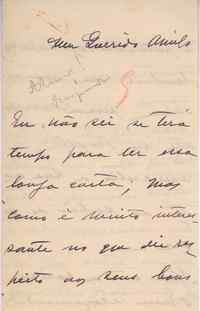 Meu Querido Amigo
Eu não sei se terá
tempo para ler essa
longa carta, mas
como é muito interes
sante no que diz res
peito aos seus bons